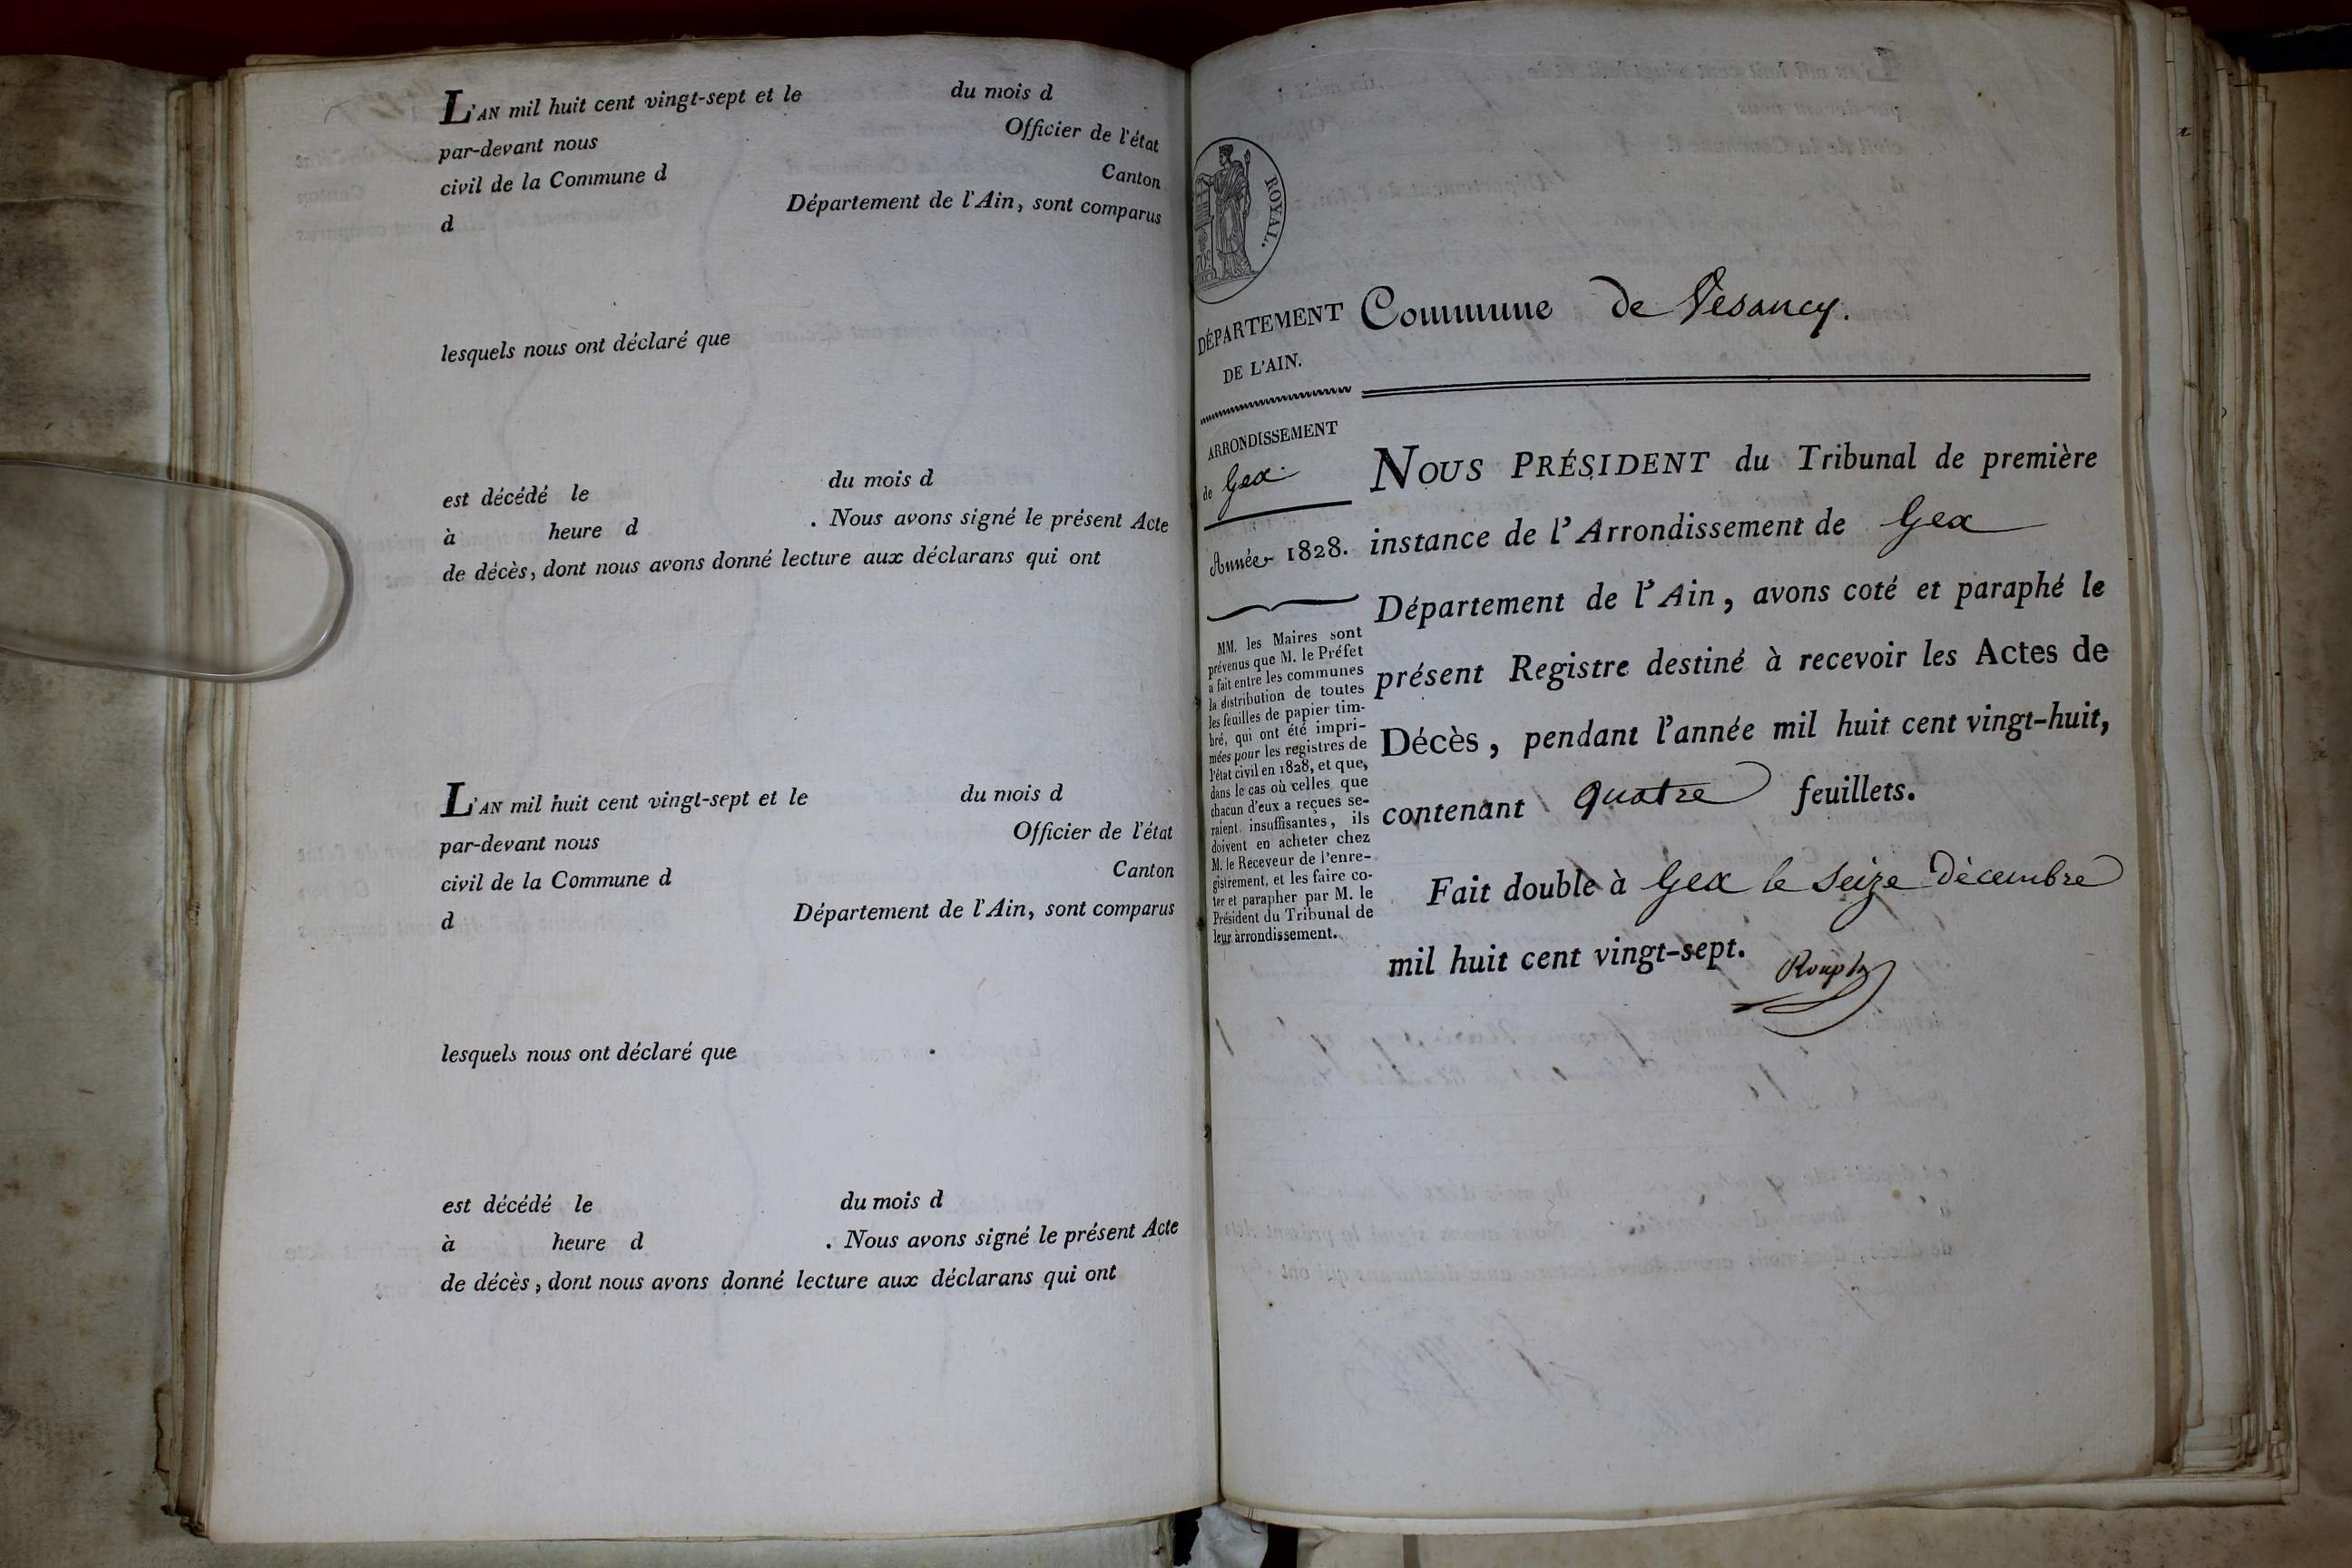 L'AN mil huit cent vingt-sept et le du mois d
par-devant nous Officier de l'état
civil de la Commune d Canton
d Département de l'Ain, sont comparus
lesquels nous ont déclaré que
est décédé le du mois d
à heure d . Nous avons signé le présent Acte
de décès, dont nous avons donné lecture aux déclarans qui ont
L'AN mil huit cent vingt-sept et le du mois d
par-devant nous Officier de l'état
civil de la Commune d Canton
d Département de l'Ain, sont comparus
lesquels nous ont déclaré que
est décédé le du mois d
à heure d . Nous avons signé le présent Acte
de décès, dont nous avons donné lecture aux déclarans qui ont
ROYAL.
DÉPARTEMENT
DE L'AIN.
ARRONDISSEMENT
de Gex.
Année 1828.
MM. les Maires sont
prévenus que M. le Préfet
a fait entre les communes
la distribution de toutes
les feuilles de papier tim-
bré, qui ont été impri-
mées pour les registres de
l'état civil en 1828, et que,
dans le cas où celles que
chacun d'eux a reçues se-
raient insuffisantes, ils
doivent en acheter chez
M. le Receveur de l'enre-
gistrement, et les faire co-
ter et parapher par M. le
Président du Tribunal de
leur arrondissement.
Commune de Vesancy.
NOUS PRÉSIDENT du Tribunal de première
instance de l'Arrondissement de Gex
Département de l'Ain, avons coté et paraphé le
présent Registre destiné à recevoir les Actes de
Décès, pendant l'année mil huit cent vingt-huit,
contenant quatre feuillets.
Fait double à Gex le seize Décembre
mil huit cent vingt-sept.